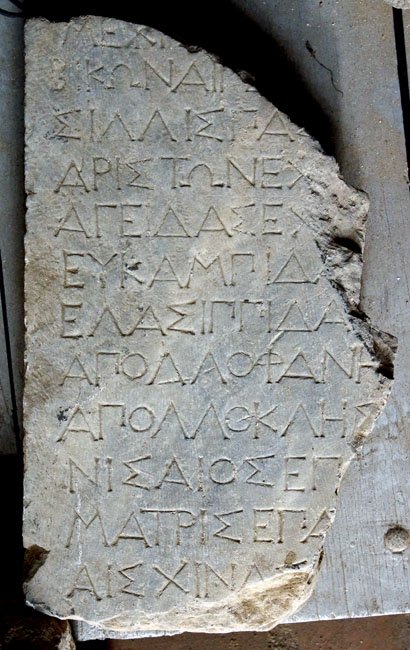 ΜΕΧΙ
ΙΚΩΝΑΙΓ
ΣΙΛΛΙΣΠΑ
ΑΡΙΣΤΩΝΕΧ
ΑΓΕΙΔΑΣΕΧ
ΕΥΚΑΜΠΙΔΑ
ΕΛΑΣΙΠΠΙΔΑ
ΑΠΟΔΑΟΦΑΝΗ
ΑΠΟΛΛΟΚΛΗΣ
ΝΙΣΑΙΟΣΕΠ
ΜΑΤΡΙΣΕΠΑ
ΑΙΣΧΙΝΑ